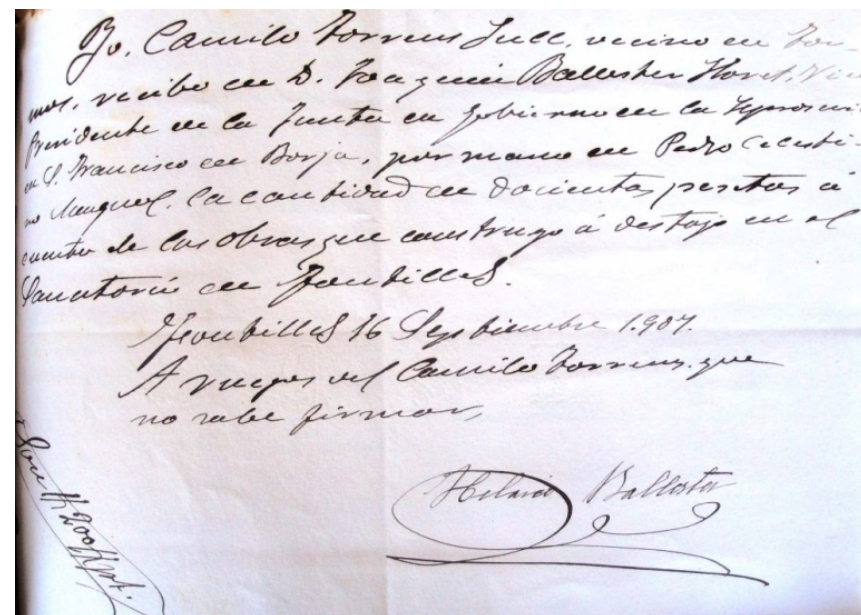 Yo, Camilo Torrens Sull, vecino de Tor-
mos, recibo de D. Joaquin Ballester Lloret, Vice
Presidente de la Junta de Gobierno de la Leproseria
de S. Francisco de Borja, por mano de Pedro Celesti-
no Mengual, la cantidad de docientas pesetas á
cuenta de las obras que construyo á destajo en el
Sanatorio de Fontilles.
Fontilles 16 Septiembre 1.907.
A ruegos del Camilo Torrens, que
no sabe firmar,
Hilario Ballester
Son # 200 # pt.